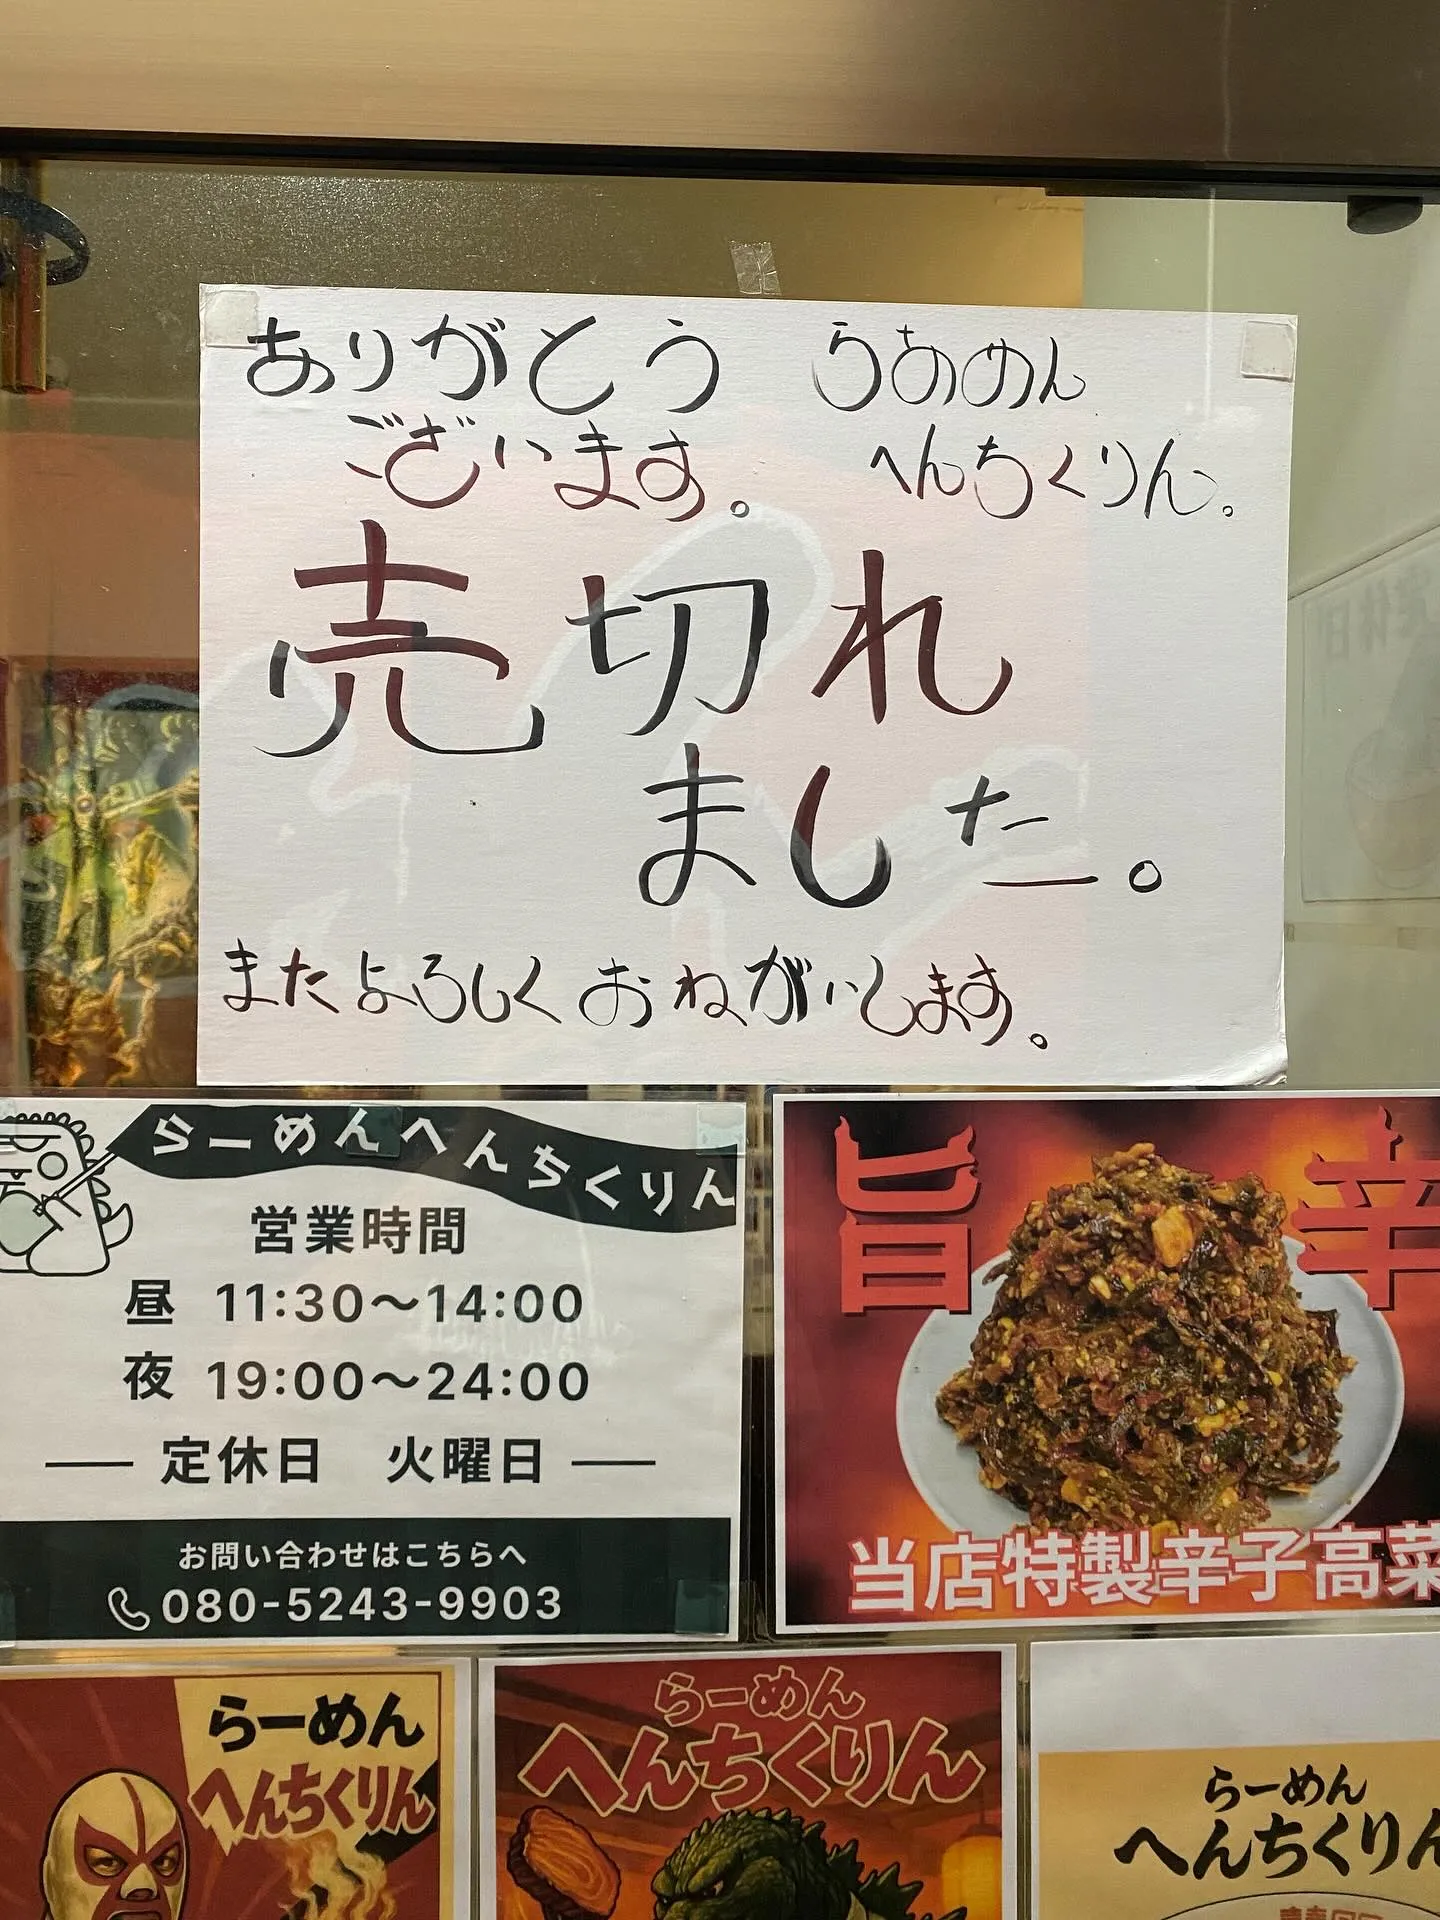 ありがとう
ございます。
らあめん
へんちくりん。
売切れ
ました。
またよろしくおねがいします。
らーめんへんちくりん
営業時間
昼 11:30〜14:00
夜 19:00〜24:00
定休日 火曜日
お問い合わせはこちらへ
080-5243-9903
旨 辛
当店特製辛子高菜
らーめん
へんちくりん
らーめん
へんちくりん
らーめん
へんちくりん
定休日